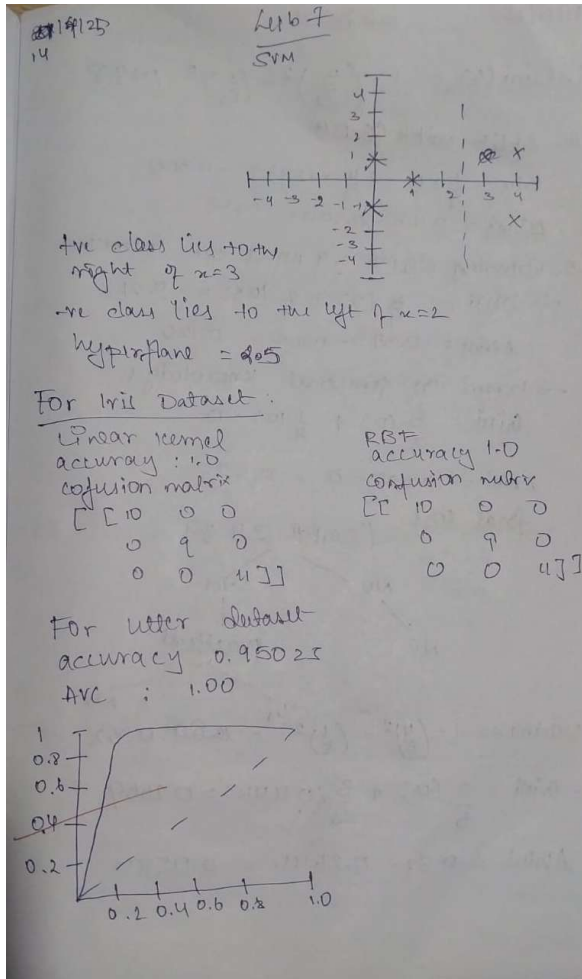 Lab 7
14
SVM
4
3
2
1
-4 -3 -2 -1 1 2 3 4
-1
-2
-3
-4
+ve class lies to the
right of x=3
-ve class lies to the left of x=2
hyperplane = 2.5
For Iris Dataset :
Linear kernel
accuracy : 1.0
cofusion matrix
[ [ 10 0 0
0 9 0
0 0 11 ]]
RBF
accuracy 1.0
confusion matrix
[[ 10 0 0
0 9 0
0 0 11 ]]
For letter dataset
accuracy 0.95025
AUC : 1.00
1
0.8
0.6
0.4
0.2
0.2 0.4 0.6 0.8 1.0